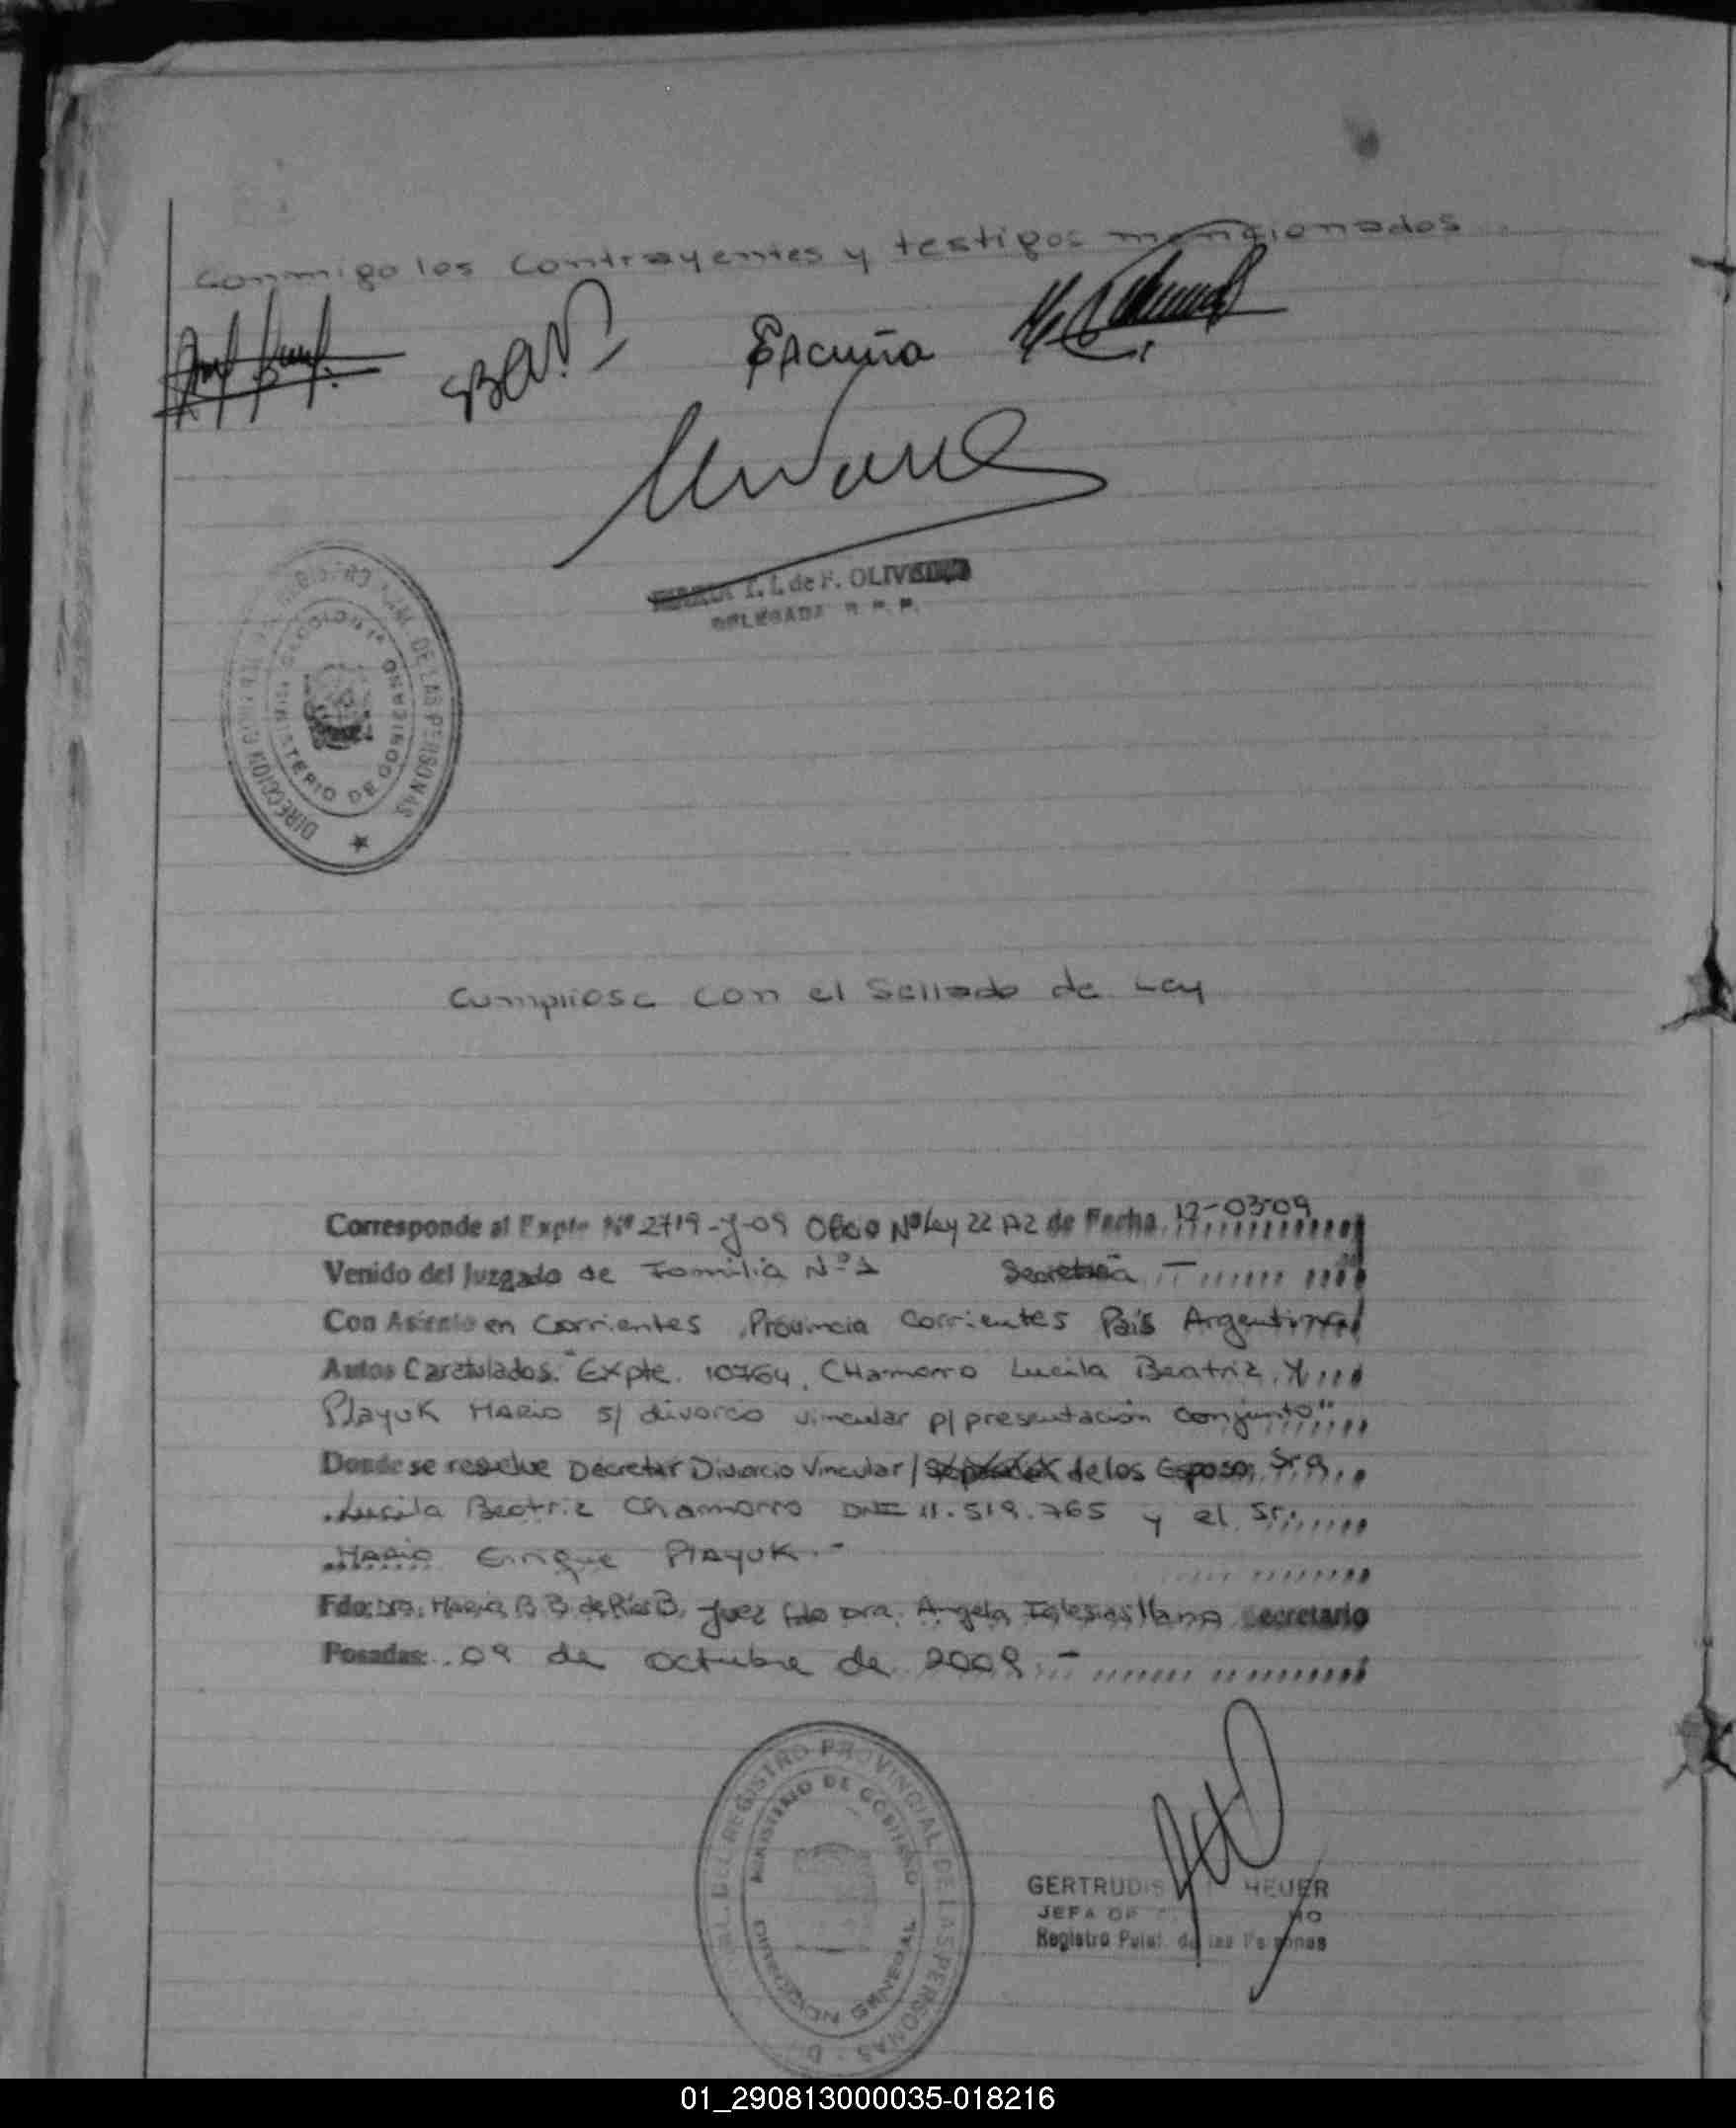 conmigo los contrayentes y testigos mencionados
EAcuña
T. I. de F. OLIVEIRA
DELEGADA R. P. P.
DIRECCION GENERAL DEL REGISTRO PCIAL. DE LAS PERSONAS
MINISTERIO DE GOBIERNO
Cumpliose con el Sellado de Ley
Corresponde al Expte Nº 2719-J-09 Oficio Nº Ley 22 172 de Fecha 12-03-09
Venido del Juzgado de Familia Nº 1 Secretaria
Con Asiento en Corrientes Provincia Corrientes Pais Argentina
Autos Caratulados: "Expte. 10764, CHamorro Lucila Beatriz Y
Playuk Mario s/ divorco vincular p/ presentación conjunto"
Donde se resuelve Decretar Divorcio Vincular / de los Esposos Sra.
Lucila Beatriz Chamorro DNI 11.519.765 y el Sr.
Mario Enrique Playuk.-
Fdo: Dra. Maria B B de Rios B. Juez fdo Dra. Angela Iglesias llano Secretario
Posadas: 09 de octubre de 2009.-
DEL REGISTRO PROVINCIAL DE LAS PERSONAS
MINISTERIO DE GOBIERNO
DIRECCION GENERAL
GERTRUDIS HEUER
JEFA DE
Registro Pcial. de las Personas
01_290813000035-018216